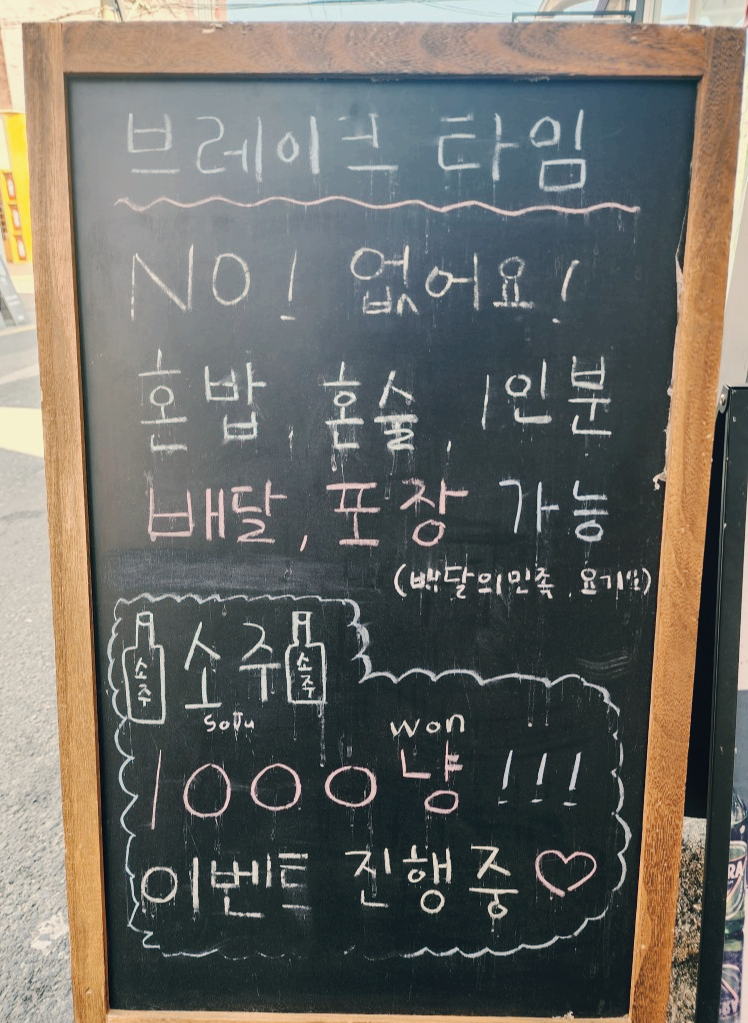 브레이크 타임
NO! 없어요!
혼밥, 혼술, 1인분
배달, 포장 가능
(배달의민족, 요기요)
소주 소주 소주
soju
won
1000냥!!!
이벤트 진행중♡